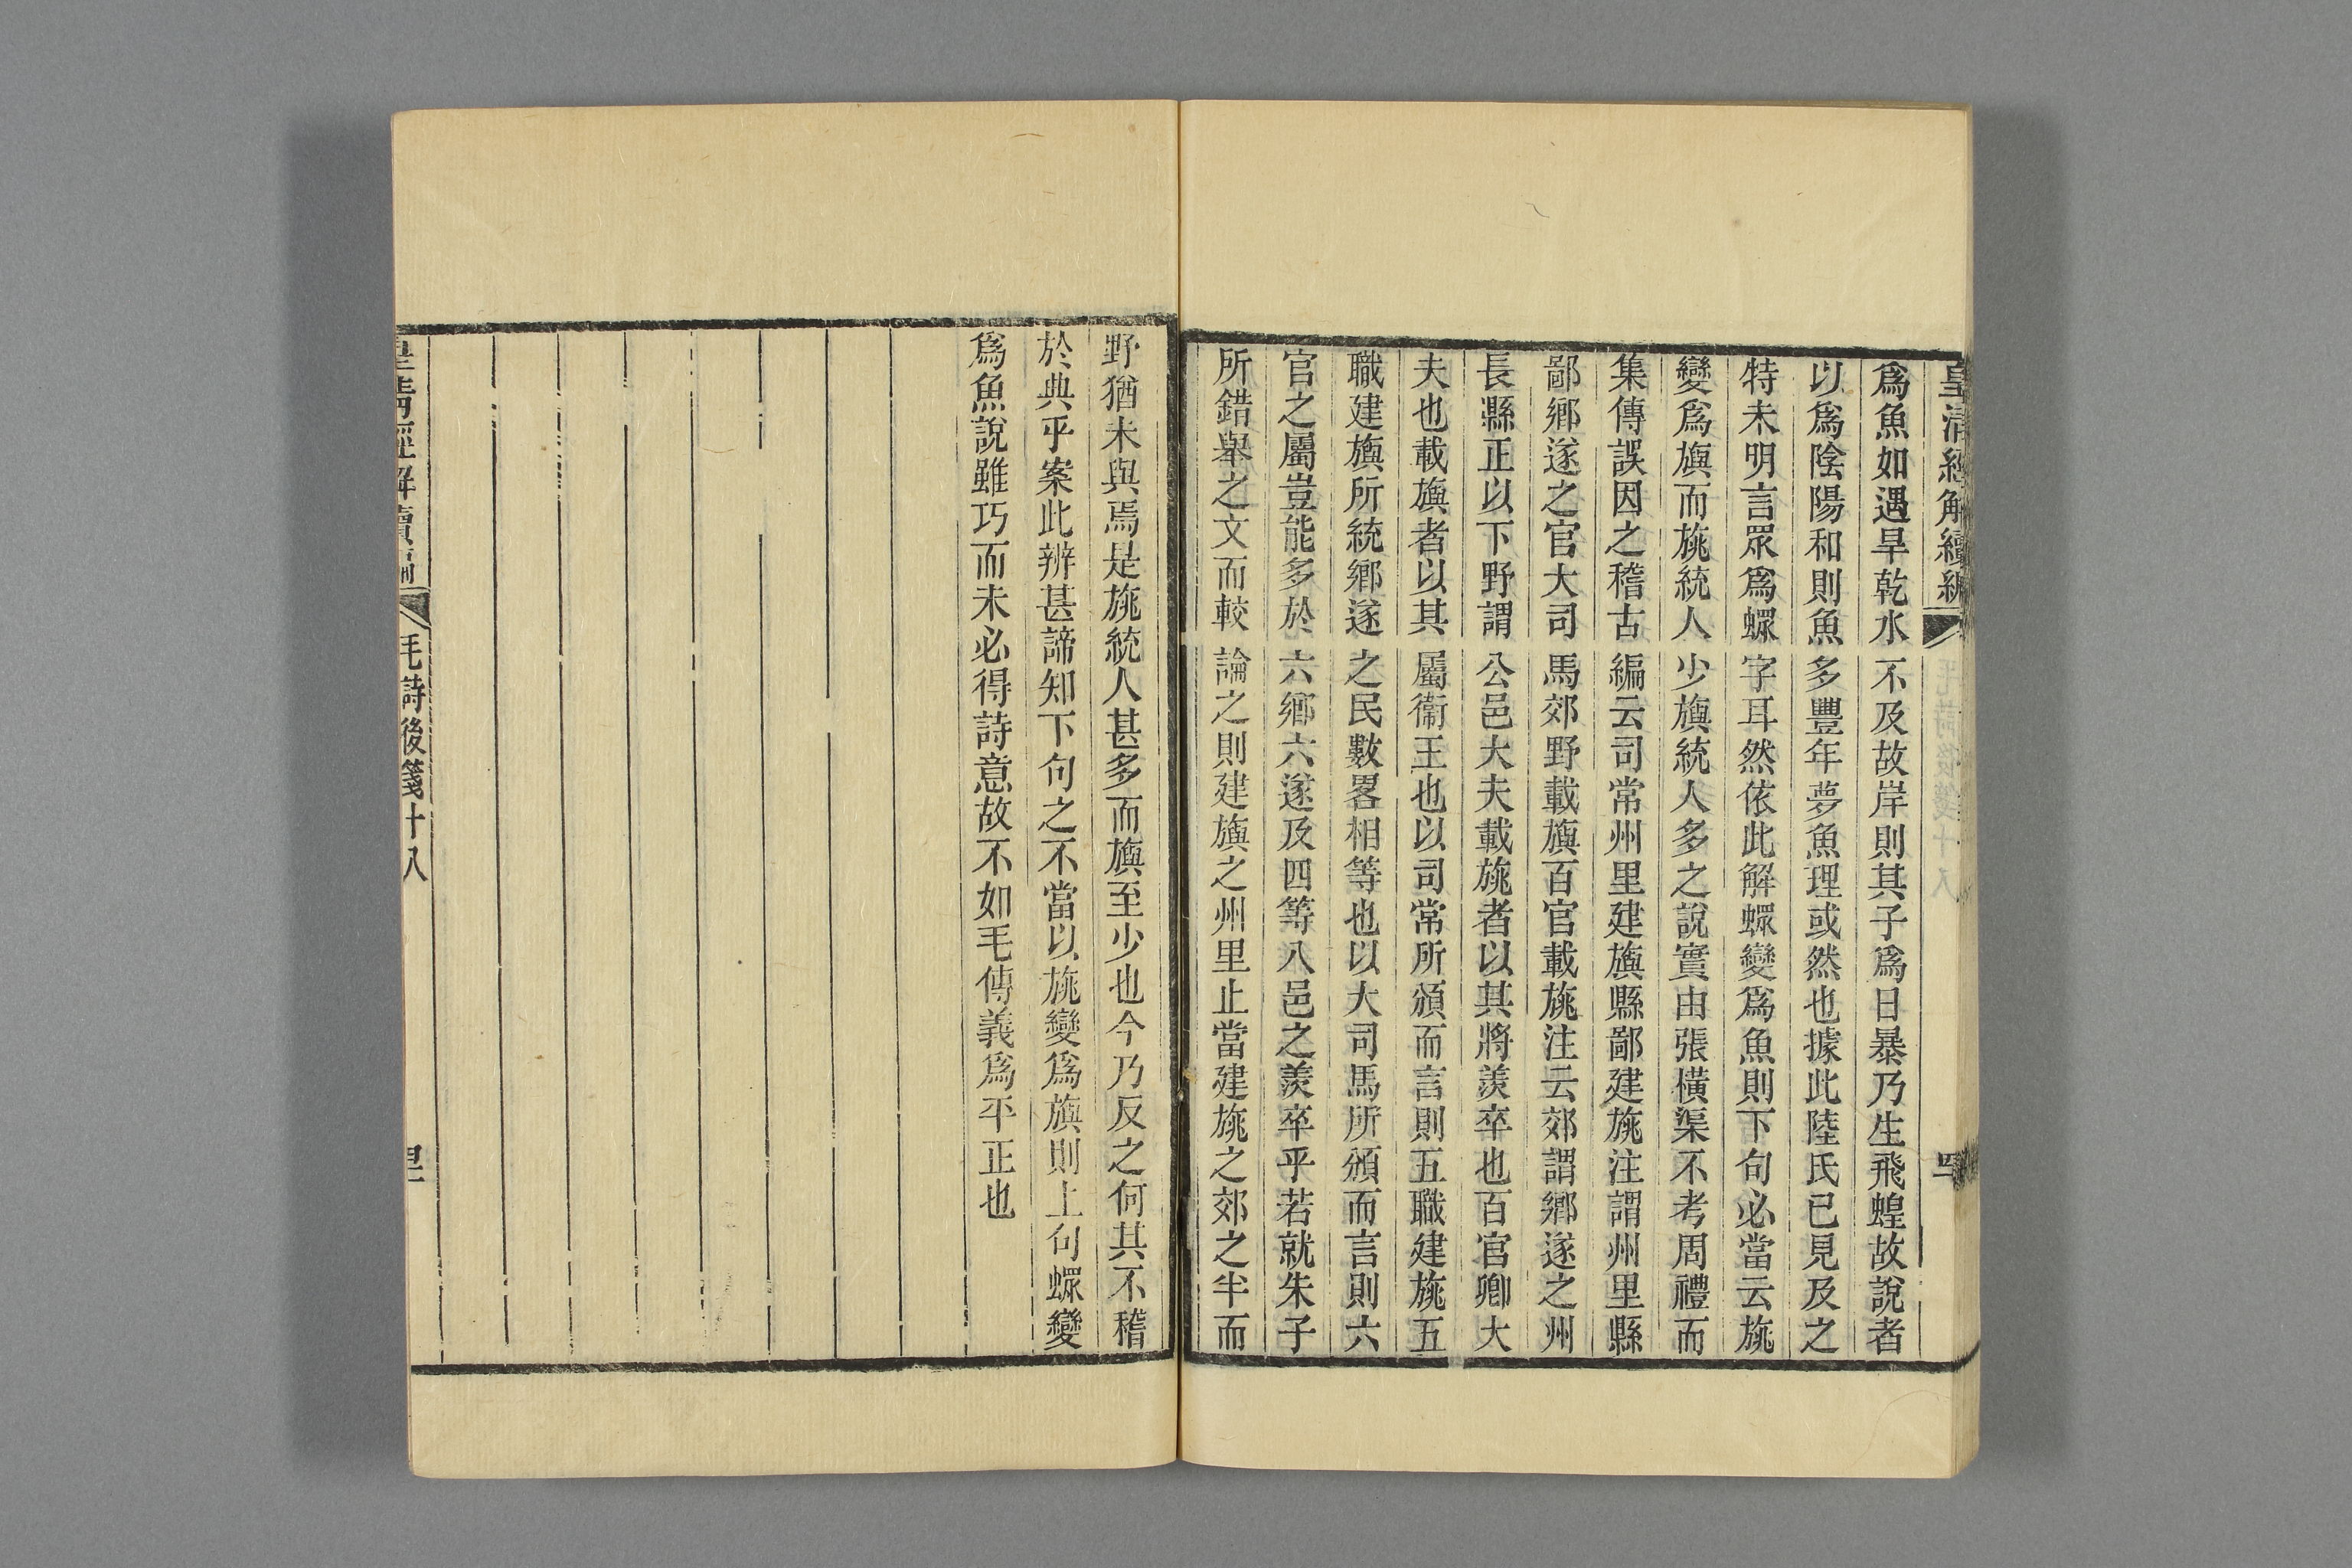 皇清經解續編
爲魚如遇旱乾水不及故岸則其子爲日暴乃生飛蝗故說者
以爲陰陽和則魚多豐年夢魚理或然也據此陸氏已見及之
特未明言眾爲螺字耳然依此解螺變爲魚則下句必當云旐
變爲旟而旐統人少旟統人多之說實由張橫渠不考周禮而
集傳誤因之稽古編云司常州里建旟縣鄙建旐注謂州里縣
鄙鄉遂之官大司馬郊野載旟百官載旐注云郊謂鄉遂之州
長縣正以下野謂公邑大夫載旐者以其將羨卒也百官卿大
夫也載旟者以其屬衞王也以司常所頒而言則五職建旐五
職建旟所統鄉遂之民數畧相等也以大司馬所頒而言則六
官之屬豈能多於六鄉六遂及四等八邑之羨卒乎若就朱子
所錯舉之文而較論之則建旟之州里止當建旐之郊之半而
野猶未與焉是旐統人甚多而旟至少也今乃反之何其不稽
於典乎案此辨甚諦知下句之不當以旐變爲旟則上句螺變
爲魚說雖巧而未必得詩意故不如毛傳義爲平正也
毛詩後箋十八